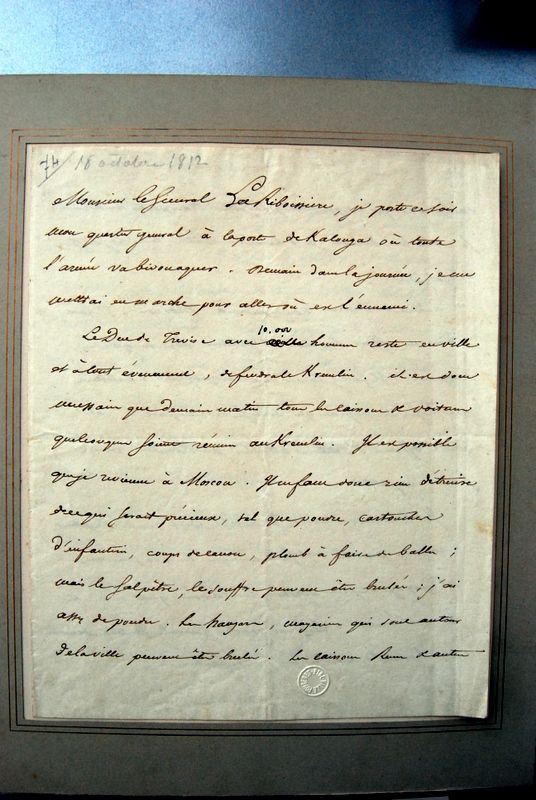 18 octobre 1812
Monsieur le Général La Riboissiere, je porte ce soir
mon quartier général à la porte de Kalouga où toute
l'armée va bivouaquer. Demain dans la journée, je me
mettrai en marche pour aller où est l'ennemi.
10,000
Le Duc de Trévise avec hommes reste en ville
et à tout événement, défendra le Kremlin. il est donc
nécessaire que demain matin tous les caissons et voitures
quelconques soient réunis au Kremlin. Il est possible
que je revienne à Moscou. Il ne faut donc rien détruire
de ce qui serait précieux, tel que poudre, cartouches
d'infanterie, coups de canon, plomb à faire des balles;
mais le salpêtre, le souffre peuvent être brulés; j'ai
assez de poudre. Les hangars, magasins qui sont autour
de la ville peuvent être brulés. Les caissons Russes et autres